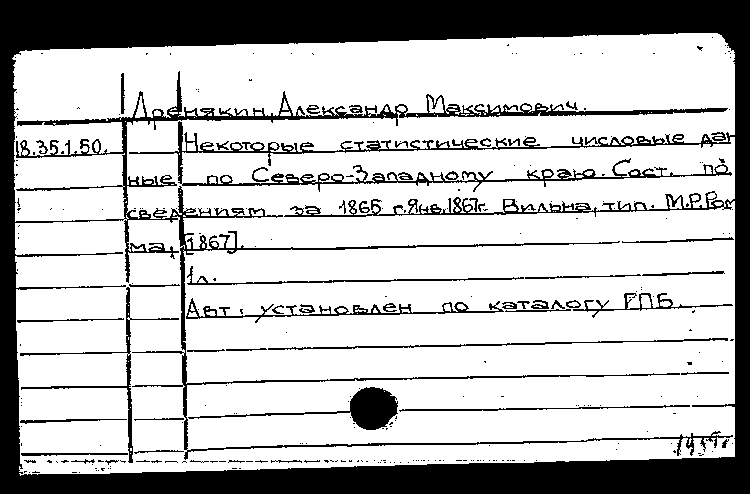 Дренякин, Александр Максимович.
18.35.1.50. Некоторые статистические числовые дан
ные по Северо-Западному краю. Сост. по
сведениям за 1865 г. Янв. 1867 г. Вильна, тип. М.Р.Ром
ма, [1867].
1 л.
Авт. установлен по каталогу ГПБ.